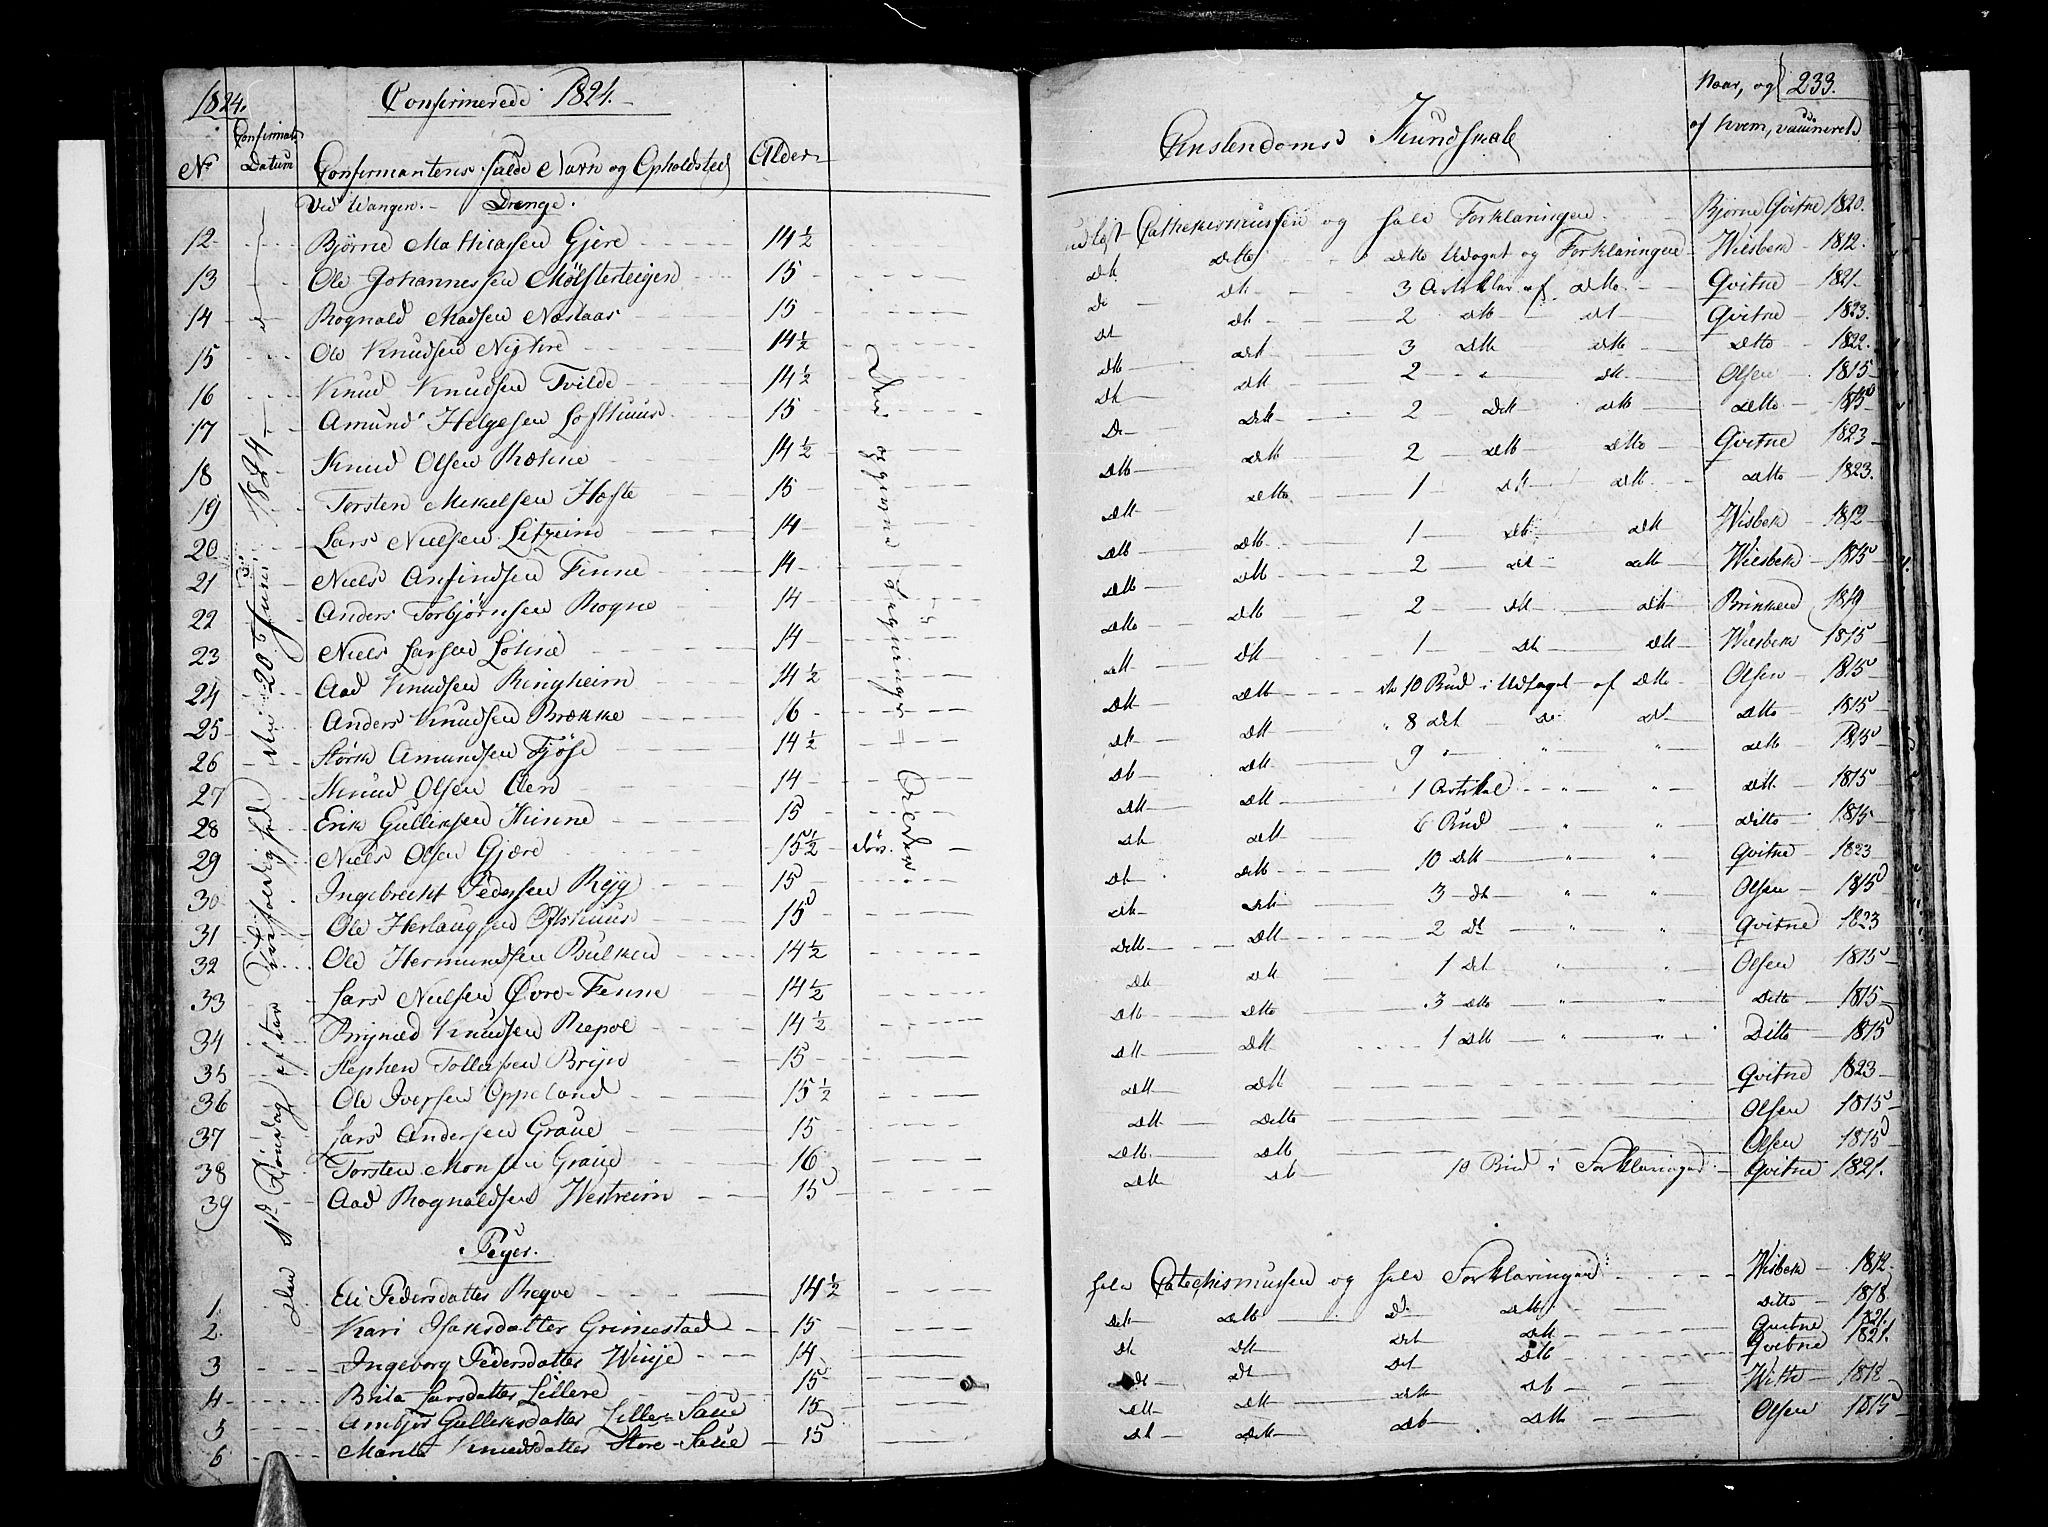 1824.
Confirmerede 1824.
No
Confirmat: Datum
Confirmantens fulde Navn og Opholdsted
Alder
Ved Wangen. Drenge.
12 Bjørne Mathiassen Gjere 14 1/2
13 Ole Johannessen Mølsterteigen 15
14 Rognald Madsen Næstaas 15
15 Ole Knudsen 14 1/2
16 Knud Knudsen Tvilde 14 1/2
17 Amund Helgesen Lofthuus 15
18 Knud Olsen 14 1/2
19 Torsten Mikelsen 15
20 Lars Nielsen 14
21 Niels Anfindsen Finne 14
22 Anders Torbjørnsen Rogne 14
23 Niels Larsen 14
24 Aad Knudsen Ringheim 14 1/2
25 Anders Knudsen Brække 16
26 Størk Amundsen Fjøse 14 1/2
27 Knud Olsen 14
28 Erik Gulleksen Hinne 15
29 Niels Olsen Gjære 15 1/2 døv.
30 Ingebrecht Pedersen 15
31 Ole Herlaugsen 15
32 Ole Hermundsen Bulken 14 1/2
33 Lars Nielsen Øvre-Finne 14 1/2
34 Brynild Knudsen Repve 14 1/2
35 Stephen Tollefsen Bryn 15
36 Ole Iversen Oppeland 15 1/2
37 Lars Andersen Graue 15
38 Torsten Monsen Graue 16
39 Aad Rognaldsen Westreim 15
Piger.
1 Eli Pedersdatter Reqve 14 1/2
2 Kari Isaksdatter Grimestad 15
3 Ingeborg Pedersdatter Winje 14
4 Brita Larsdatter Lillere 15
5 Ambjør Gulleksdatter Lille-Saue 15
6 Marita Knudsdatter Store-Saue 15
den 1ste Søndag efter Trefoldighed den 20de Juni 1824
Den opgivne Orden.
Christendoms Kundskab
Naar, og af hvem, vaccineret
233.
udlæst Cathekismussen og hele Forklaringen Bjørne Qvitne 1820.
dt ditto ditto Udtoget og Forklaringen Wiesbek 1812.
dt dt 3 Artikler af ditto Qvitne 1821.
dt dt 2 dto dt Qvitne 1823.
dto dt 3 dto dto ditto 1822.
dt dt 2 " dt Olsen 1815
dt dt 2 dt dto ditto 1815
dto dt 2 dto ditto Qvitne 1823
dt ditto 1 dt dto ditto 1823.
dto dto 1 dt dt Wisbek 1812
dto dto 2 dt ditto Wiesbek 1815
ditto dto 2 dt dt Brinken 1819
dt dt 1 dt dt Wiesbek 1815
dt dto dt 10 Bud i Udtoget af ditto Olsen 1815
dt dt " 8 dt dt dt ditto 1815
dt dt 9 " " " ditto 1815
dt dt 1 Artikel " " dt 1815
dt dt 6 Bud " " Ditto 1815
dt dto 10 dt " " Qvitne 1823
dt dt 3 dt " " Olsen 1815
ditto dt 2 dt " " Qvitne 1823
dt dt 1 dt " " Olsen 1815
dto ditto 3 ditto " " Ditto 1815
dt dt 1 dto " " Ditto 1815
dt dt Qvitne 1823
dt ditto Olsen 1815
dto dto Olsen 1815
dt dt 10 Bud i Forklaringen Qvitne 1821.
hele Catechismussen og hele Forklaringen Wisbek 1812.
dt dto dt dto Ditto 1818.
dt dt dt dt Qvitne 1821.
dt dt dt dto Qvitne 1821.
dt dt dt dt 1818
dt dt dt dto Olsen 1815